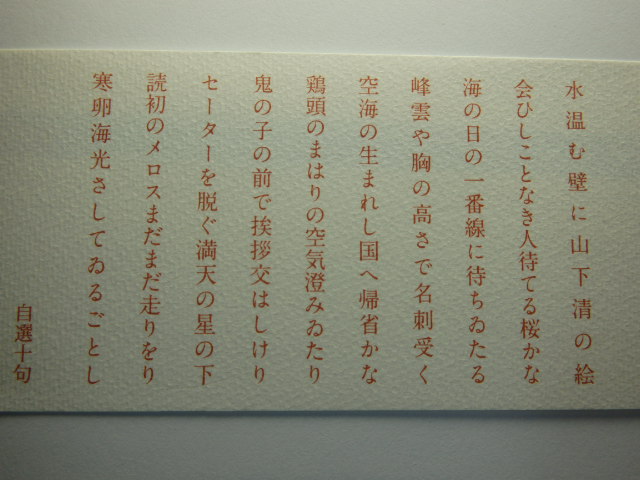 水温む壁に山下清の絵
会ひしことなき人待てる桜かな
海の日の一番線に待ちゐたる
峰雲や胸の高さで名刺受く
空海の生まれし国へ帰省かな
鶏頭のまはりの空気澄みゐたり
鬼の子の前で挨拶交はしけり
セーターを脱ぐ満天の星の下
読初のメロスまだまだ走りをり
寒卵海光さしてゐるごとし
自選十句